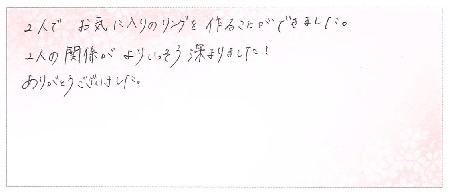 2人で お気に入りのリングを 作ることができました。
2人の関係が よりいっそう 深まりました!
ありがとうございました。